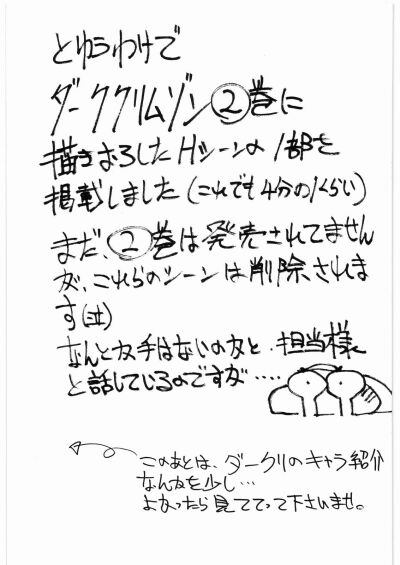 とゆうわけで
ダーククリムゾン②巻に
描きおろしたHシーンの1部を
掲載しました(これでも4分の1くらい)
まだ、②巻は発売されてません
が、これらのシーンは削除されま
す(泣)
なんとか手はないのかと、担当様
と話しているのですが‥‥
このあとは、ダークリのキャラ紹介
なんかを少し…
よかったら見てって下さいませ。